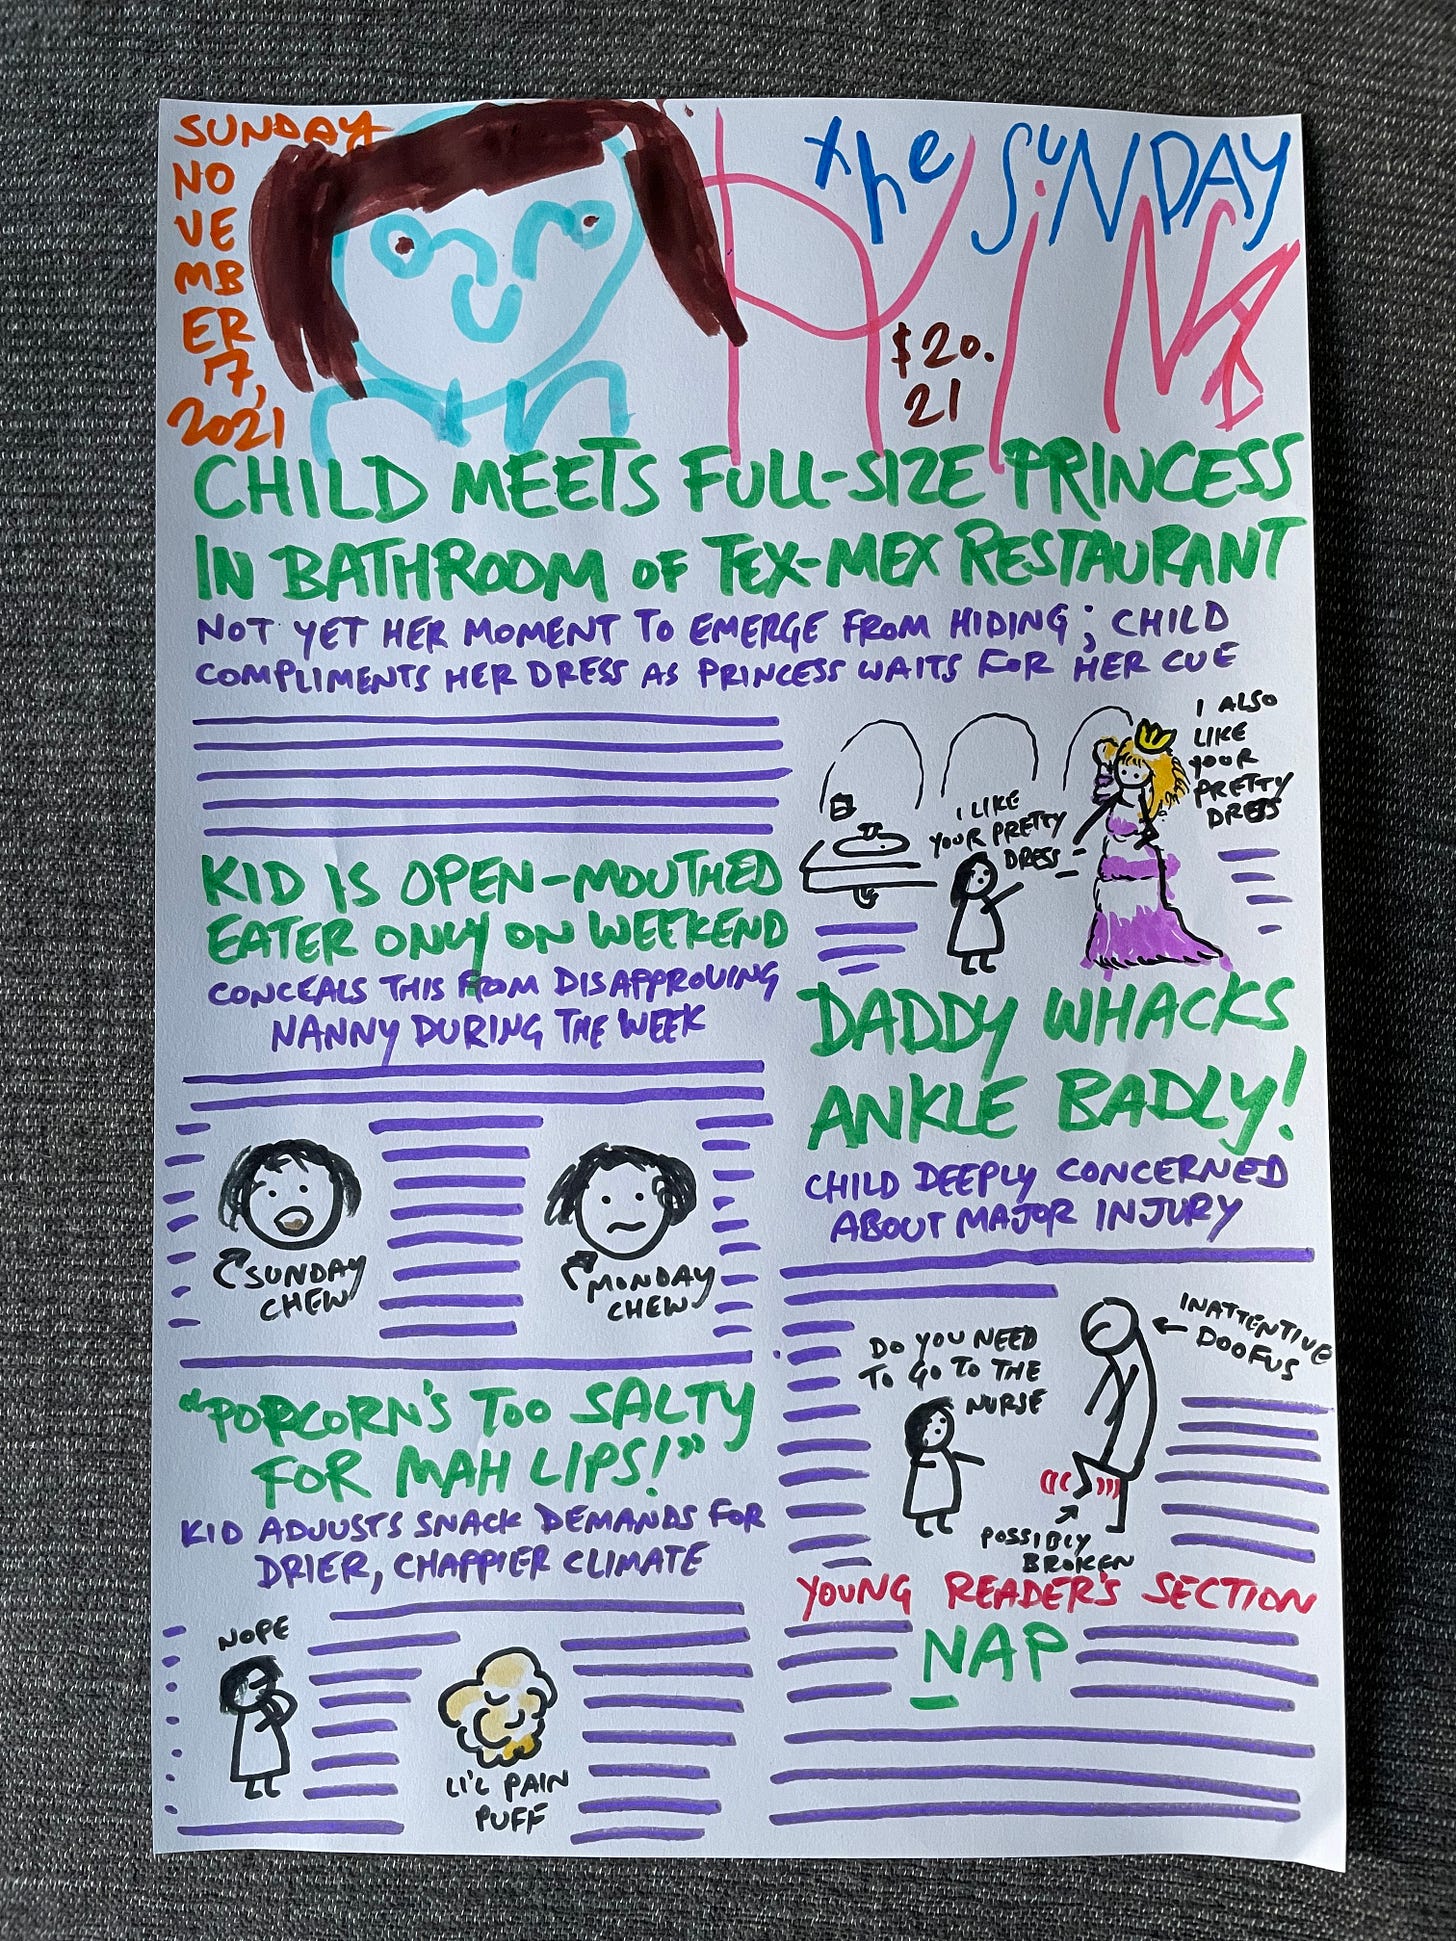 SUNDAY
NO
VE
MB
ER
17,
2021
the SUNDAY
RINA
$20.
21
CHILD MEETS FULL-SIZE PRINCESS
IN BATHROOM OF TEX-MEX RESTAURANT
NOT YET HER MOMENT TO EMERGE FROM HIDING; CHILD
COMPLIMENTS HER DRESS AS PRINCESS WAITS FOR HER CUE
I ALSO
LIKE
YOUR
PRETTY
DRESS
I LIKE
YOUR PRETTY
DRESS
KID IS OPEN-MOUTHED
EATER ONLY ON WEEKEND
CONCEALS THIS FROM DISAPPROVING
NANNY DURING THE WEEK
SUNDAY
CHEW
MONDAY
CHEW
"POPCORN'S TOO SALTY
FOR MAH LIPS!"
KID ADJUSTS SNACK DEMANDS FOR
DRIER, CHAPPIER CLIMATE
NOPE
LI'L PAIN
PUFF
DADDY WHACKS
ANKLE BADLY!
CHILD DEEPLY CONCERNED
ABOUT MAJOR INJURY
INATTENTIVE
DOOFUS
DO YOU NEED
TO GO TO THE
NURSE
POSSIBLY
BROKEN
YOUNG READER'S SECTION
NAP